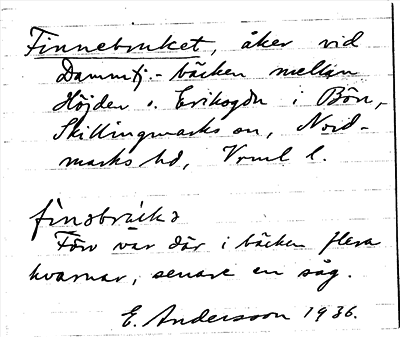 Finnebruket, åker vid
Dammtj:- bäcken mellan
Höjden o. Eriksgdn i Bön,
Skillingmarks sn, Nord-
marks hd, Vrml l.
fìnəbrúkə
Förr var där i bäcken flera
kvarnar, senare en såg.
E. Andersson 1936.